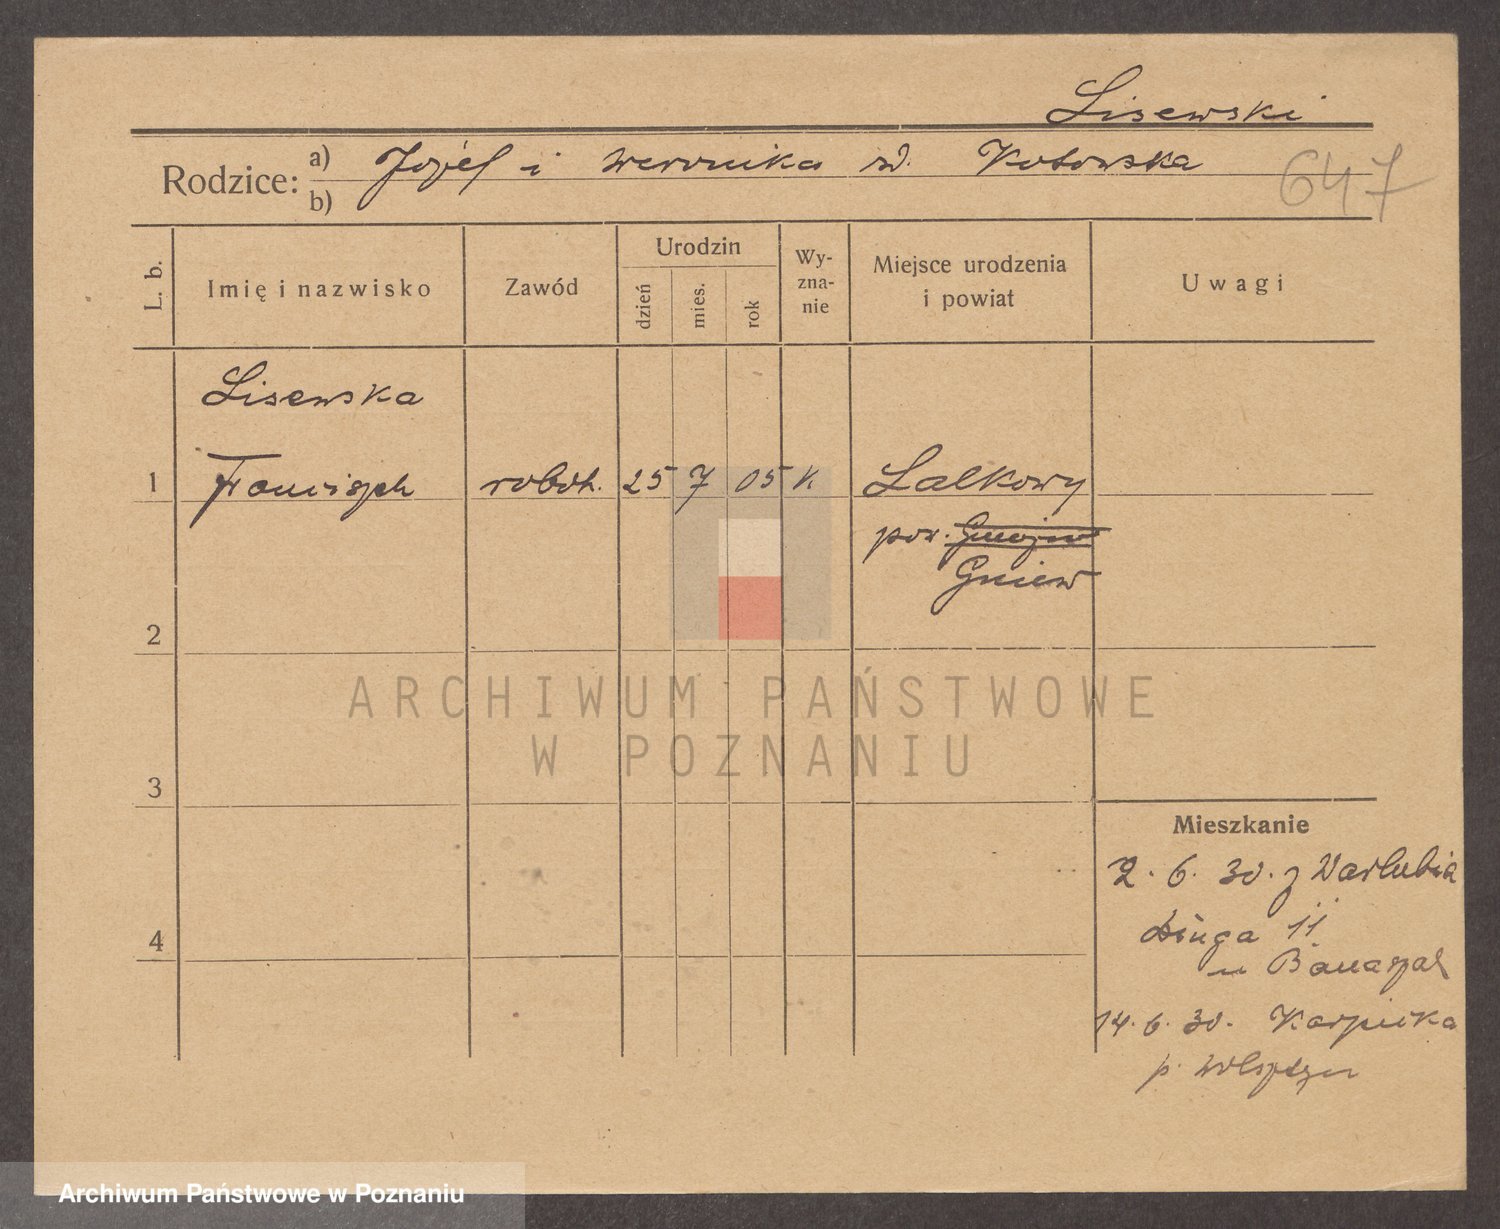 Lisewski
Rodzice: a) Józef i Weronika rd. Kotowska
b)
647
L. b. Imię i nazwisko Zawód Urodzin dzień mies. rok Wy-zna-nie Miejsce urodzenia i powiat Uwagi
Lisewska
1 Franciszek robotn. 25 7 05 k. Lalkowy
pow. Gniew
2
3
Mieszkanie
2. 6. 30. z Warlubia
Długa 11
4
u Banaszak
14. 6. 30. Karpicka
p. Wolsztyn
ARCHIWUM PAŃSTWOWE
W POZNANIU
Archiwum Państwowe w Poznaniu